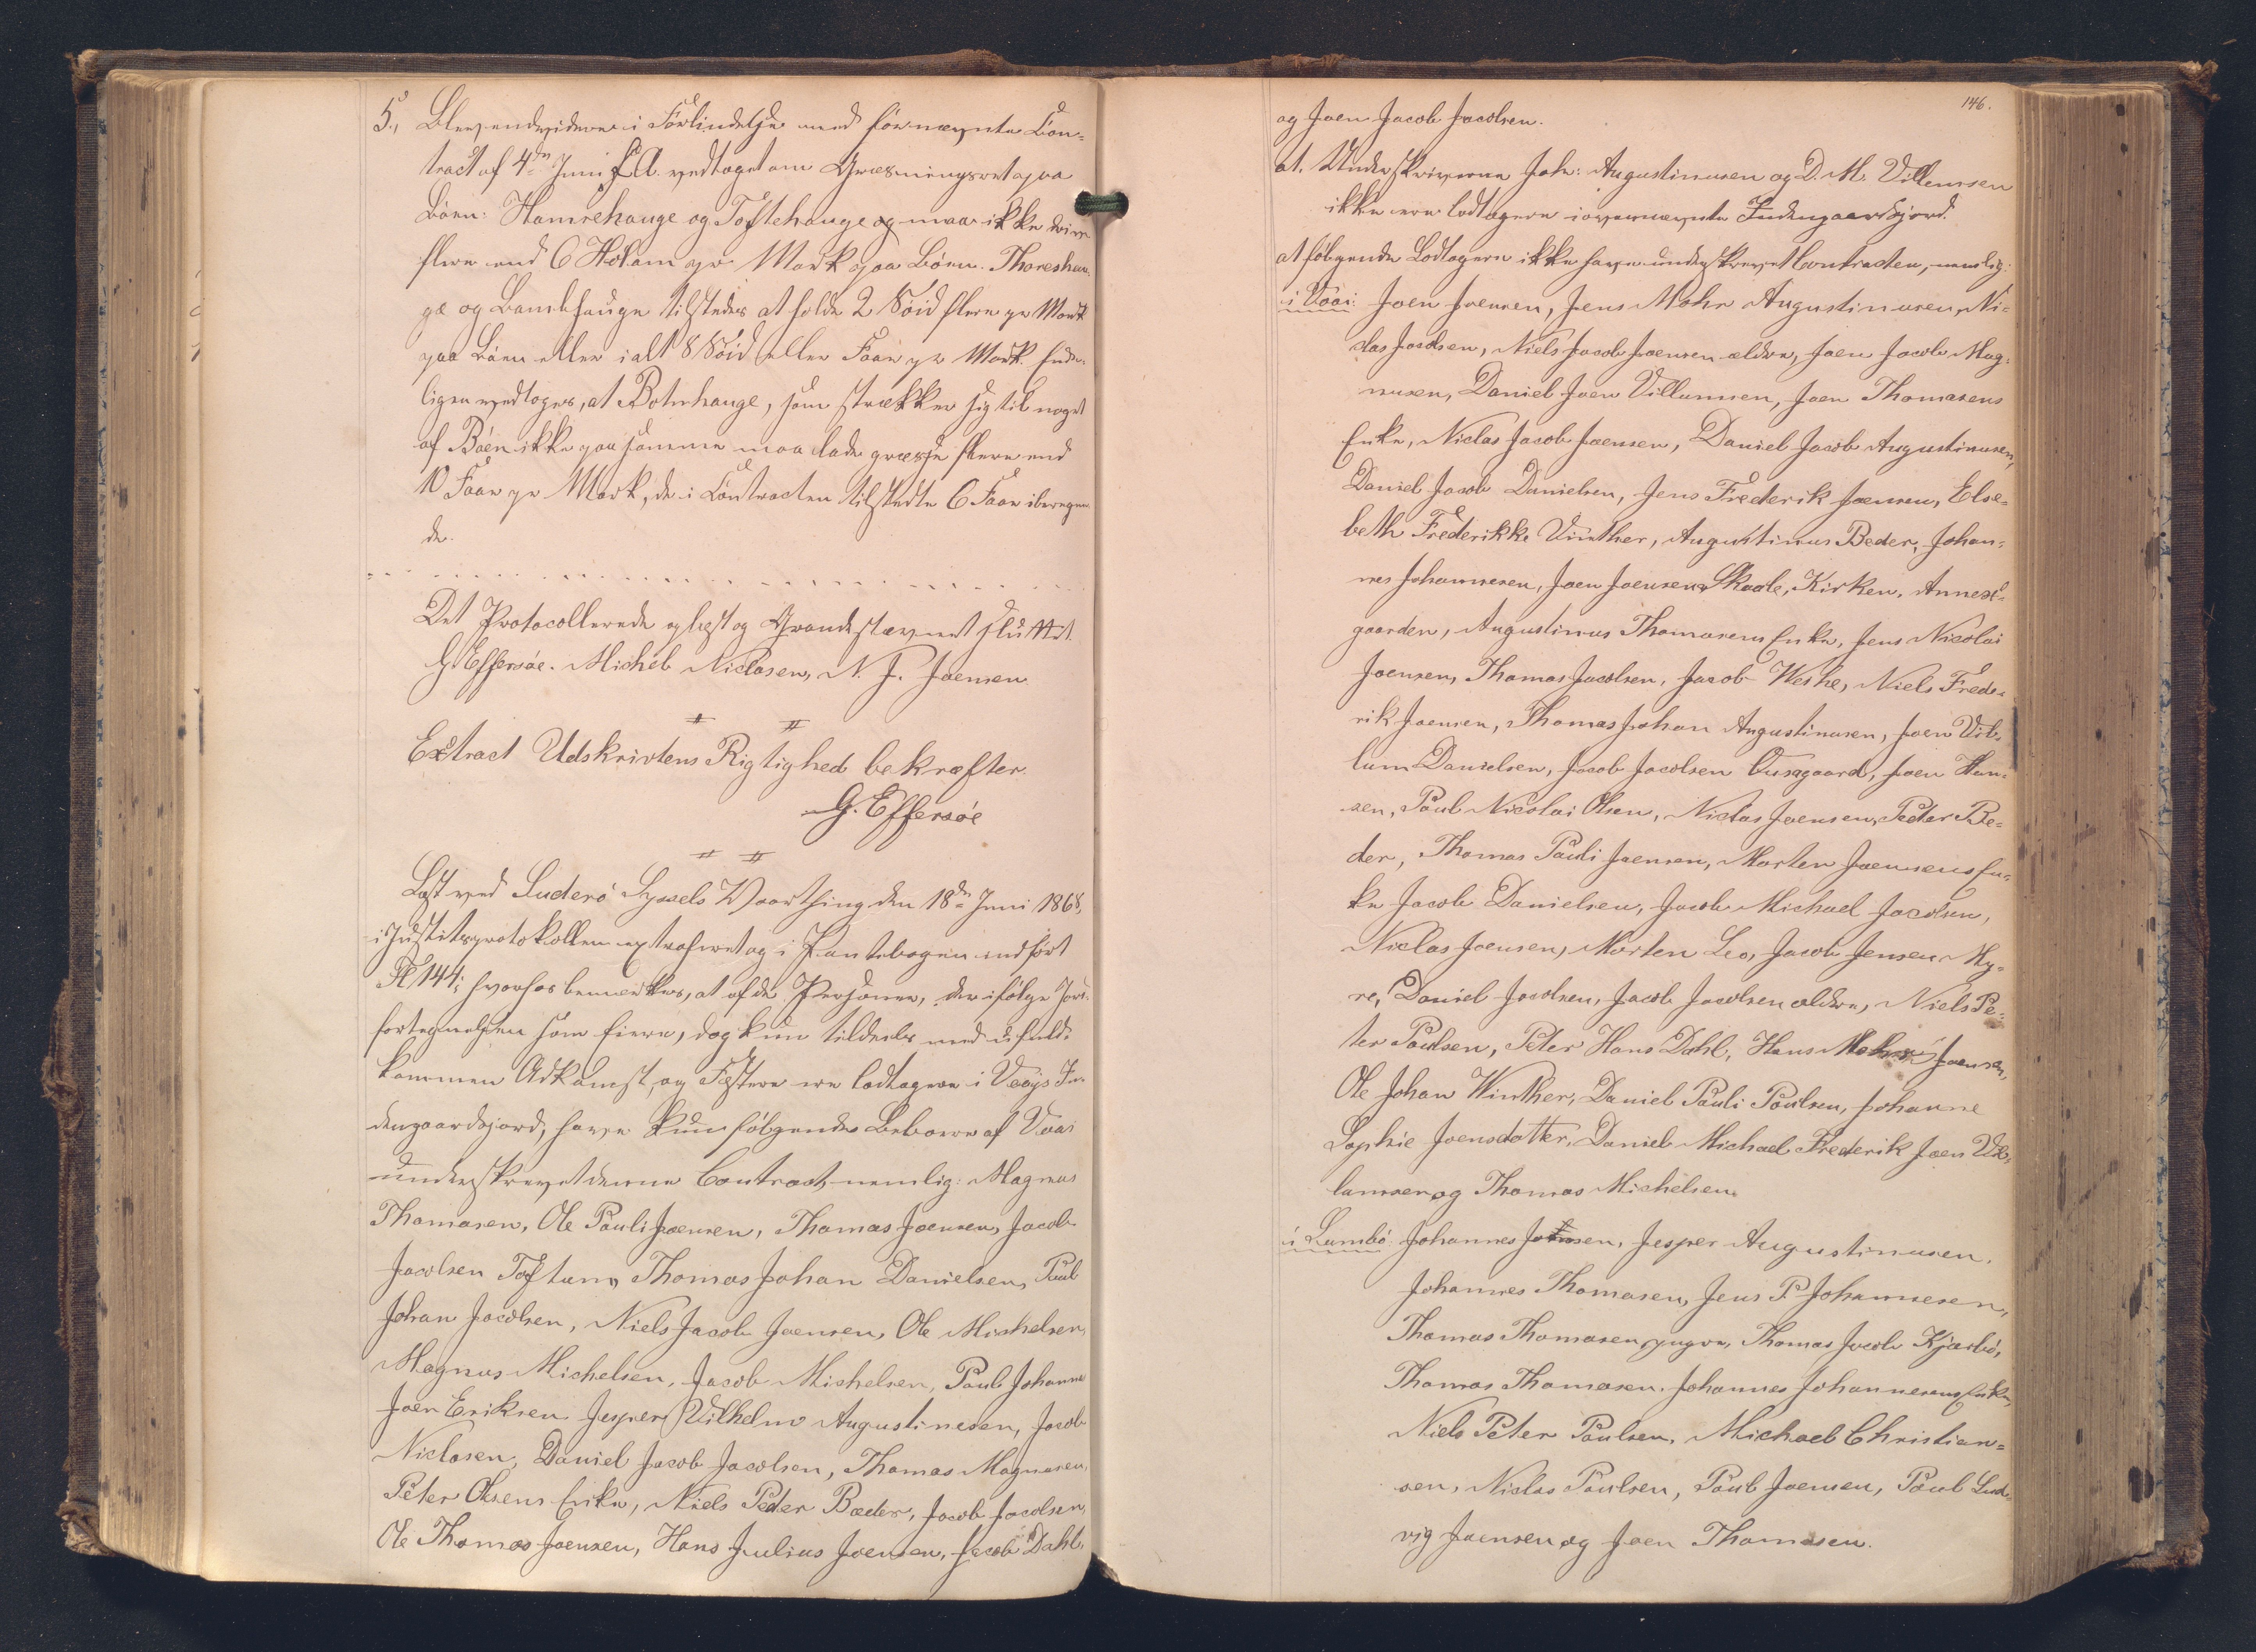 5., Blev endvidere i Forbindelse med fornævnte Con-
tract af 4de Juni d. A. vedtaget om Græsningsret paa
Böen: Hamrehauge og Toftehauge og maa ikke drive
flere end 6 Hólam pr Mark paa Böen. Thoreshau-
ge og Bambhauge tilstedes at holde 2 Söid flere pr Mark
paa Böen eller i alt 8 Söid eller Faar pr Mark. Ende-
ligen vedtoges, at Botnhauge, som strækker sig til noget
af Böen ikke paa samme maa lade græsse flere end
10 Faar pr Mark, de i Contracten tilstedte 6 Faar iberegne-
de.
Det Protocollerede oplæst og Grandestævnet sluttet.
G Effersøe. Michel Niclasen, N. J. Joensen
Extract Udskrivtens Rigtighed bekræfter.
G. Effersøe
Læst ved Suderö Syssels Vaarthing den 18de Juni 1868,
i Justitsprotokollen extraheret og i Pantebogen indført
Pl 144; hvorhos bemærkes, at af de Personer, der ifølge Jord-
fortegnelsen som Eiere, dog kun tildeels med ufuld-
kommen Adkomst, og Fæstere ere lodtagere i Vaajs In-
dengaardsjord, have kun følgende Beboere af Vaai
underskrevet denne Contract, nemlig: Magnus
Thomasen, Ole Pauli Joensen, Thomas Joensen, Jacob
Jacobsen Toftum, Thomas Johan Danielsen, Paul
Johan Jacobsen, Niels Jacob Joensen, Ole Michelsen,
Magnus Michelsen, Jacob Michelsen, Paul Johannes
Joen Eriksen Jesper Vilhelm Augustinesen, Jacob
Niclasen, Daniel Jacob Jacobsen, Thomas Magnusen,
Peter Olsens Enke, Niels Peder Bæder, Jacob Jacobsen,
Ole Thomas Joensen, Hans Julius Joensen, Jacob Dahl,
146.
og Joen Jacob Jacobsen.
at. Underskriverne Joh: Augustinusen og D. M. Villemsen
ikke ere lodtagere i ovennævnte Indengaardsjord.
at følgende Lodtagere ikke have underskrevet Contracten, nemlig:
i Vaai: Joen Joensen, Jens Mohr Augustinusen, Ni-
clas Jacobsen, Niels Jacob Joensen ældre, Joen Jacob Mag-
nusen, Daniel Joen Villumsen, Joen Thomasens
Enke, Niclas Jacob Joensen, Daniel Jacob Augustinusen,
Daniel Jacob Danielsen, Jens Frederik Joensen, Else-
beth Frederikke Vinther, Augustinus Beder, Johan-
nes Johannesen, Joen Joensen Skaale, Kirken, Annex-
gaarden, Augustinus Thomasens Enke, Jens Nicolai
Joensen, Thomas Jacobsen, Jacob Weihe, Niels Frede-
rik Joensen, Thomas Johan Augustinusen, Joen Vil-
lum Danielsen, Jacob Jacobsen Ousagaard, Joen Han-
sen, Paul Nicolai Olsen, Niclas Joensen, Peder Be-
der, Thomas Pauli Joensen, Morten Joensens En-
ke Jacob Danielsen, Jacob Michael Jacobsen,
Niclas Joensen, Morten Leo, Jacob Jensen My-
re, Daniel Jacobsen, Jacob Jacobsen ældre, Niels Pe-
ter Poulsen, Peter Hans Dahl, Hans Mohr Joensen,
Ole Johan Winther, Daniel Pauli Poulsen, Johanne
Sophie Joensdatter, Daniel Michael Frederik Joen Vil-
lumsen og Thomas Michelsen.
i Lambö: Johannes Joensen, Jesper Augustinusen,
Johannes Thomasen, Jens P Johannesen,
Thomas Thomasen yngre, Thomas Jacob Kjærbö,
Thomas Thomasen. Johannes Johannesens Enke,
Niels Peter Poulsen, Michael Christian-
sen, Niclas Poulsen, Paul Joensen, Paul Lud-
vig Joensen og Joen Thomasen.